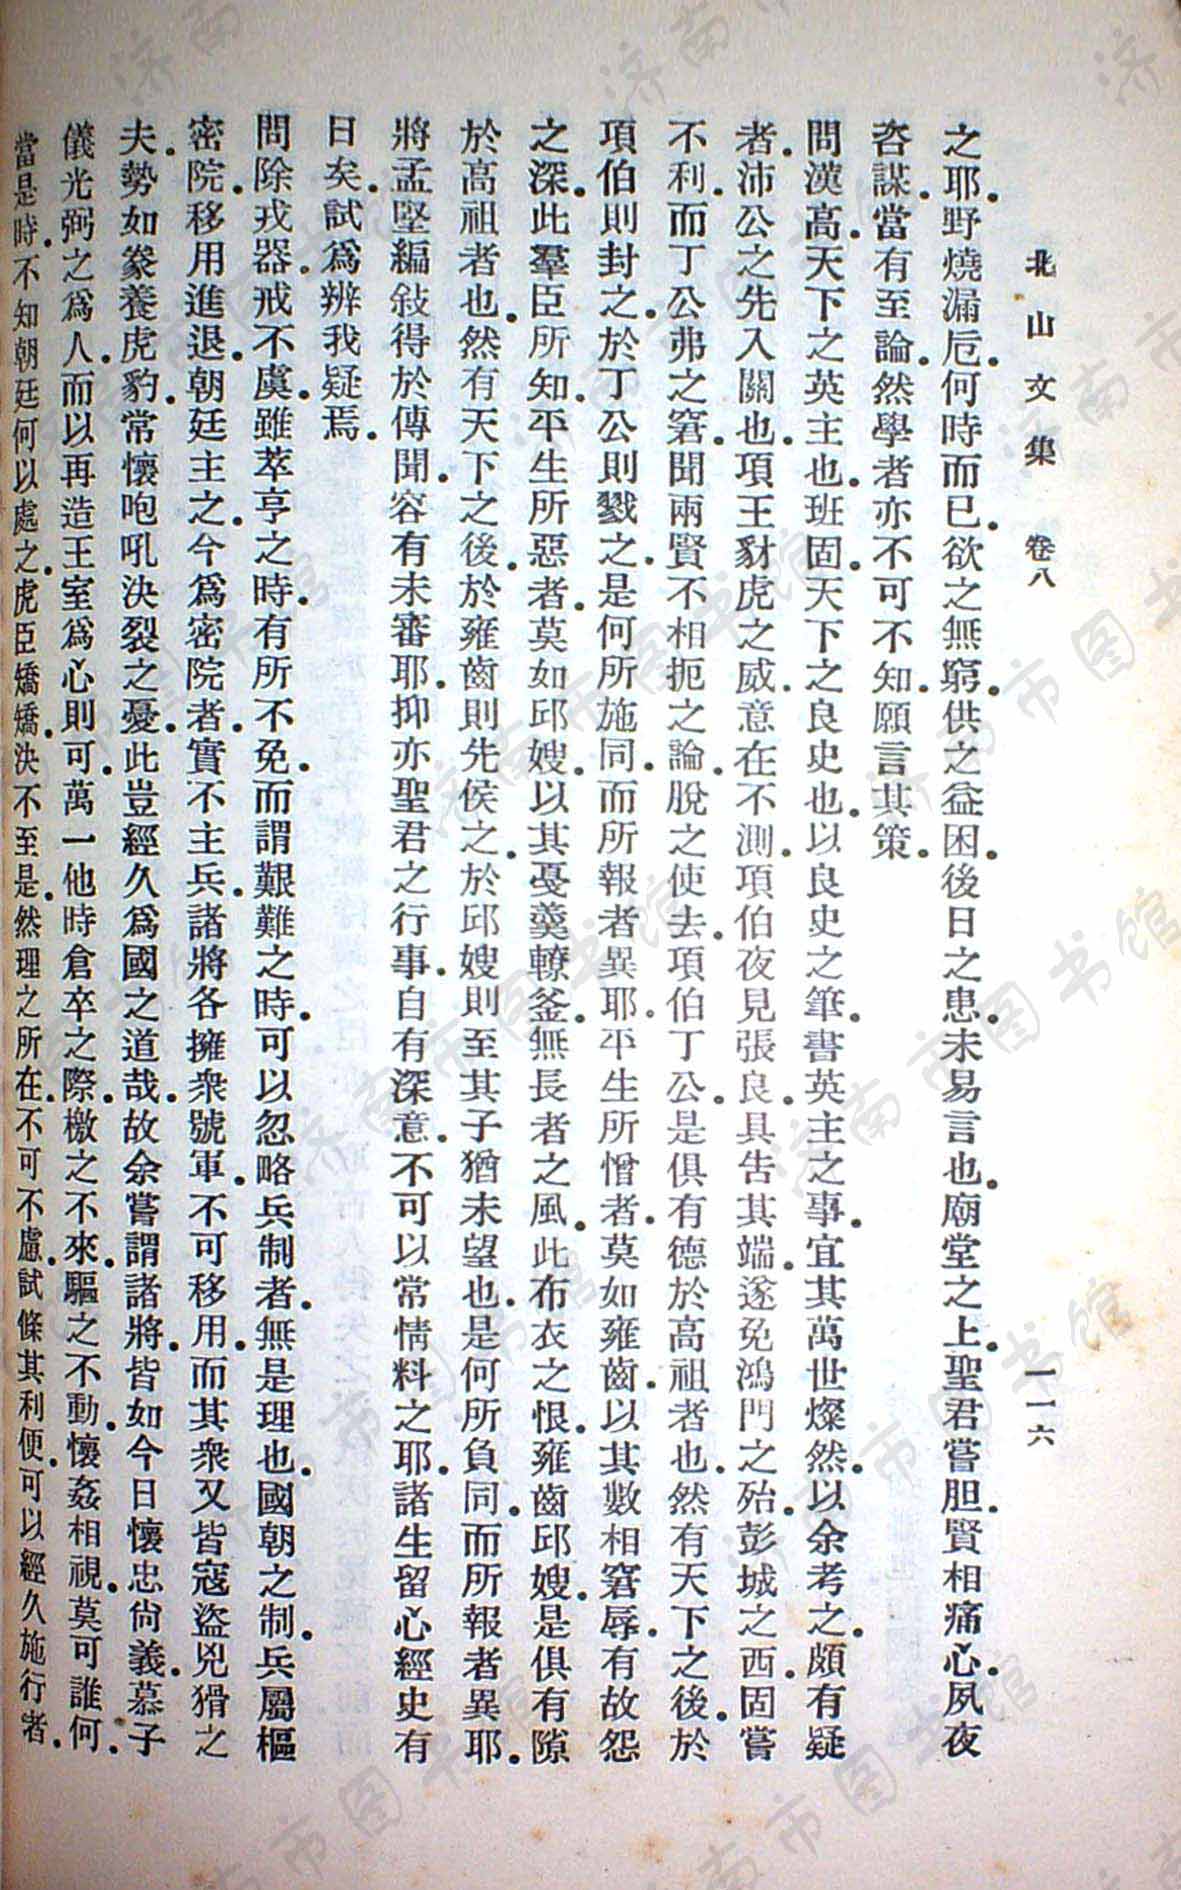 北山文集 卷八 一一六
之耶.野燒漏卮.何時而已.欲之無窮.供之益困.後日之患.未易言也.廟堂之上.聖君嘗胆.賢相痛心.夙夜
咨謀.當有至論.然學者亦不可不知.願言其策.
問漢高.天下之英主也.班固.天下之良史也.以良史之筆.書英主之事.宜其萬世燦然.以余考之.頗有疑
者.沛公之先入關也.項王豺虎之威.意在不測.項伯夜見張良.具告其端.遂免鴻門之殆.彭城之西.固嘗
不利.而丁公弗之窘.聞兩賢不相扼之論.脫之使去.項伯丁公.是俱有德於高祖者也.然有天下之後.於
項伯則封之.於丁公則戮之.是何所施同.而所報者異耶.平生所憎者.莫如雍齒.以其數相窘辱.有故怨
之深.此羣臣所知.平生所惡者.莫如邱嫂.以其戞羹轑釜.無長者之風.此布衣之恨.雍齒邱嫂.是俱有隙
於高祖者也.然有天下之後.於雍齒則先侯之.於邱嫂則至其子猶未望也.是何所負同.而所報者異耶.
將孟堅編敍得於傳聞.容有未審耶.抑亦聖君之行事.自有深意.不可以常情料之耶.諸生留心經史有
日矣.試爲辨我疑焉.
問除戎器.戒不虞.雖萃亨之時.有所不免.而謂艱難之時.可以忽略兵制者.無是理也.國朝之制.兵屬樞
密院.移用進退.朝廷主之.今爲密院者.實不主兵.諸將各擁衆號軍.不可移用.而其衆又皆寇盜兇猾之
夫.勢如豢養虎豹.常懷咆吼決裂之憂.此豈經久爲國之道哉.故余嘗謂諸將.皆如今日懷忠尙義.慕子
儀光弼之爲人.而以再造王室爲心則可.萬一他時倉卒之際.檄之不來.驅之不動.懷姦相視.莫可誰何.
當是時.不知朝廷何以處之.虎臣矯矯.決不至是.然理之所在.不可不慮.試條其利便.可以經久施行者.